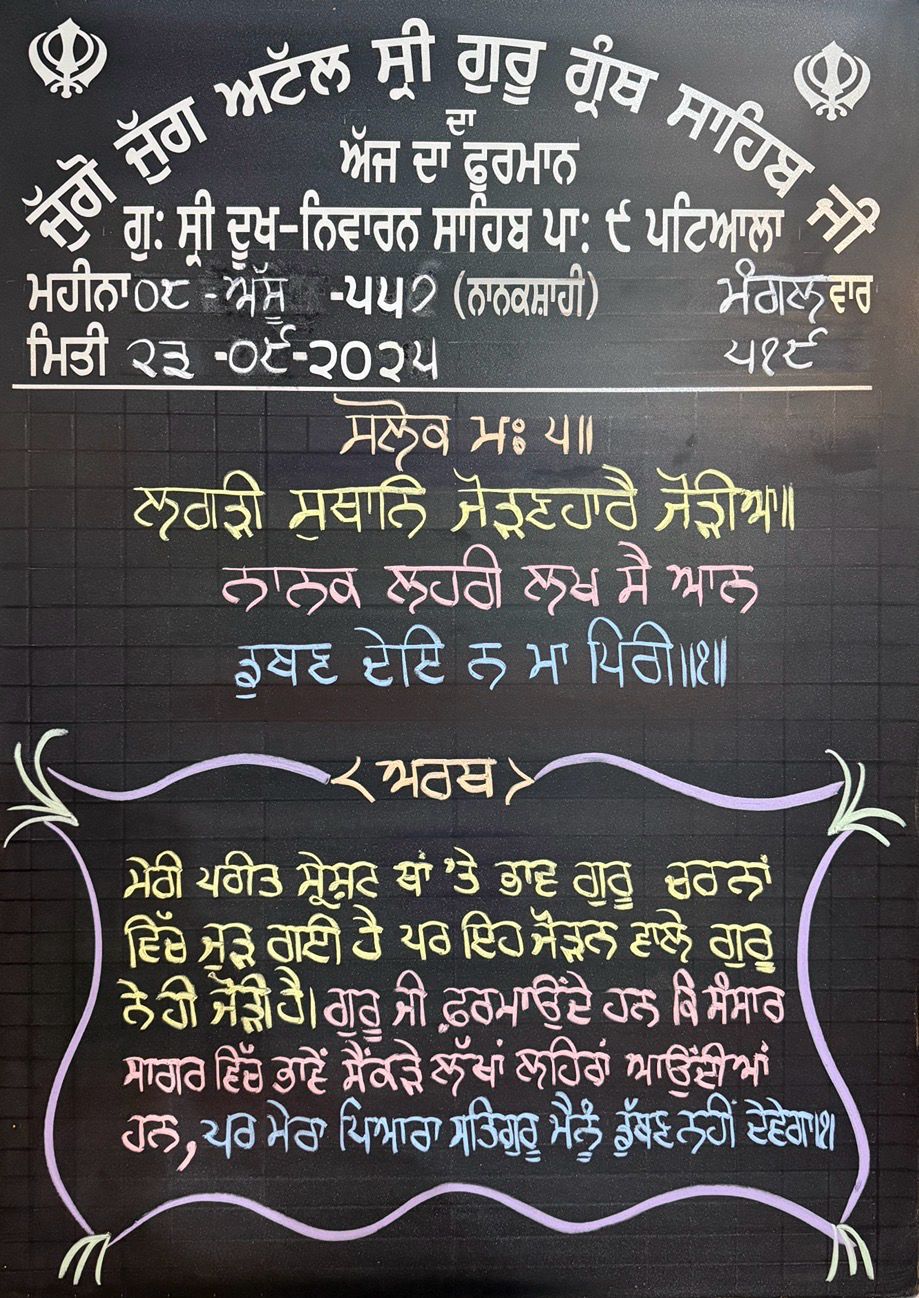 ਜੁੱਗੋ ਜੁੱਗ ਅਟੱਲ ਸ੍ਰੀ ਗੁਰੂ ਗ੍ਰੰਥ ਸਾਹਿਬ ਜੀ
ਦਾ
ਅੱਜ ਦਾ ਫੁਰਮਾਨ
ਗੁ: ਸ੍ਰੀ ਦੂਖ-ਨਿਵਾਰਨ ਸਾਹਿਬ ਪਾ: ੯ ਪਟਿਆਲਾ
ਮਹੀਨਾ ੦੮ - ਅੱਸੂ -੫੫੭ (ਨਾਨਕਸ਼ਾਹੀ) ਮੰਗਲਵਾਰ
ਮਿਤੀ ੨੩ -੦੯-੨੦੨੫ ੫੧੯
ਸਲੋਕ ਮਃ ੫॥
ਲਗੜੀ ਸੁਥਾਨਿ ਜੋੜਣਹਾਰੈ ਜੋੜੀਆ॥
ਨਾਨਕ ਲਹਰੀ ਲਖ ਸੈ ਆਨ
ਡੁਬਣ ਦੇਇ ਨ ਮਾ ਪਿਰੀ॥੧॥
ਅਰਥ
ਮੇਰੀ ਪਰੀਤ ਸ੍ਰੇਸ਼ਟ ਥਾਂ 'ਤੇ ਭਾਵ ਗੁਰੂ ਚਰਨਾਂ
ਵਿੱਚ ਜੁੜ ਗਈ ਹੈ ਪਰ ਇਹ ਜੋੜਨ ਵਾਲੇ ਗੁਰੂ
ਨੇ ਹੀ ਜੋੜੀ ਹੈ। ਗੁਰੂ ਜੀ ਫ਼ਰਮਾਉਂਦੇ ਹਨ ਕਿ ਸੰਸਾਰ
ਸਾਗਰ ਵਿੱਚ ਭਾਵੇਂ ਸੈਂਕੜੇ ਲੱਖਾਂ ਲਹਿਰਾਂ ਆਉਂਦੀਆਂ
ਹਨ, ਪਰ ਮੇਰਾ ਪਿਆਰਾ ਸਤਿਗੁਰੂ ਮੈਨੂੰ ਡੁੱਬਣ ਨਹੀਂ ਦੇਵੇਗਾ।੧।